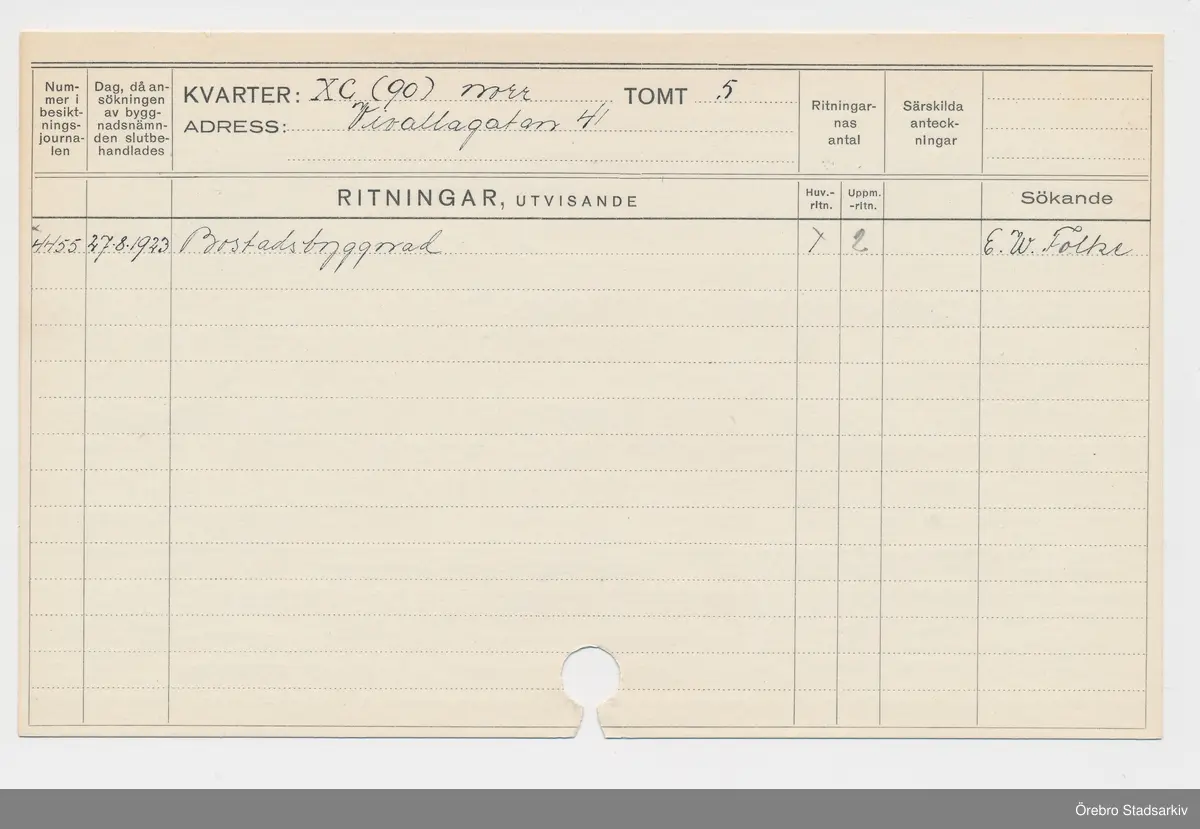 Num-
mer i
besikt-
nings-
journa-
len
Dag, då an-
sökningen
av bygg-
nadsnämn-
den slutbe-
handlades
KVARTER: XC (90) norr TOMT 5
ADRESS: Vivallagatan 41
Ritningar-
nas
antal
Särskilda
anteck-
ningar
RITNINGAR, UTVISANDE
Huv.-
ritn.
Uppm.
-ritn.
Sökande
4455 27.8.1923 Bostadsbyggnad 2 E. W. Folke
Örebro Stadsarkiv